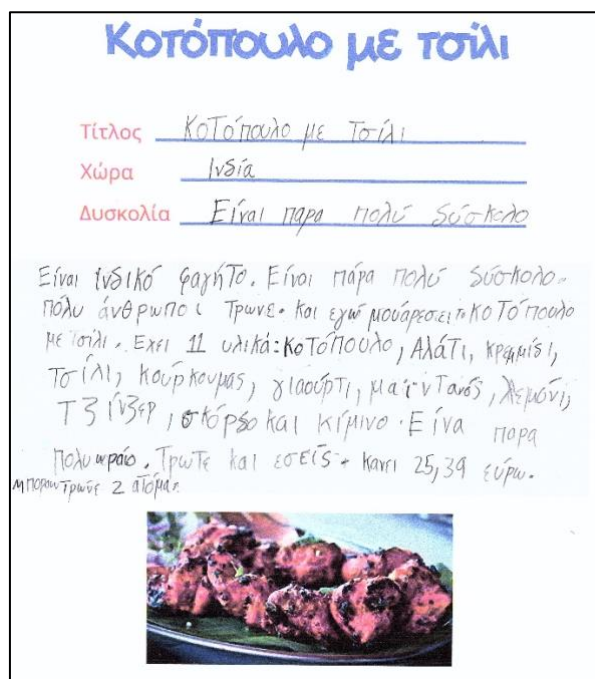 Κοτόπουλο με τσίλι
Τίτλος Κοτόπουλο με τσίλι
Χώρα Ινδία
Δυσκολία Είναι παρα πολύ δύσκολο
Είναι ινδικό φαγήτο. Είναι πάρα πολύ δύσκολο.
Πόλυ άνθρωποι τρωνε. Και εγώ μουάρεσει το κοτόπουλο
με τσίλι. Εχει 11 υλικά: κοτόπουλο, Αλάτι, κρεμμίδι,
Τσίλι, κούρκουμας, γιαούρτι, μαιντανός, λεμόνι,
Τζίνζερ, σκόρδο και κίμινο. Είνα παρα
πολυ ωραίο. Τρωτε και εσείς. κανει 25,39 εύρω.
Μπορουν τρώνε 2 άτομα.